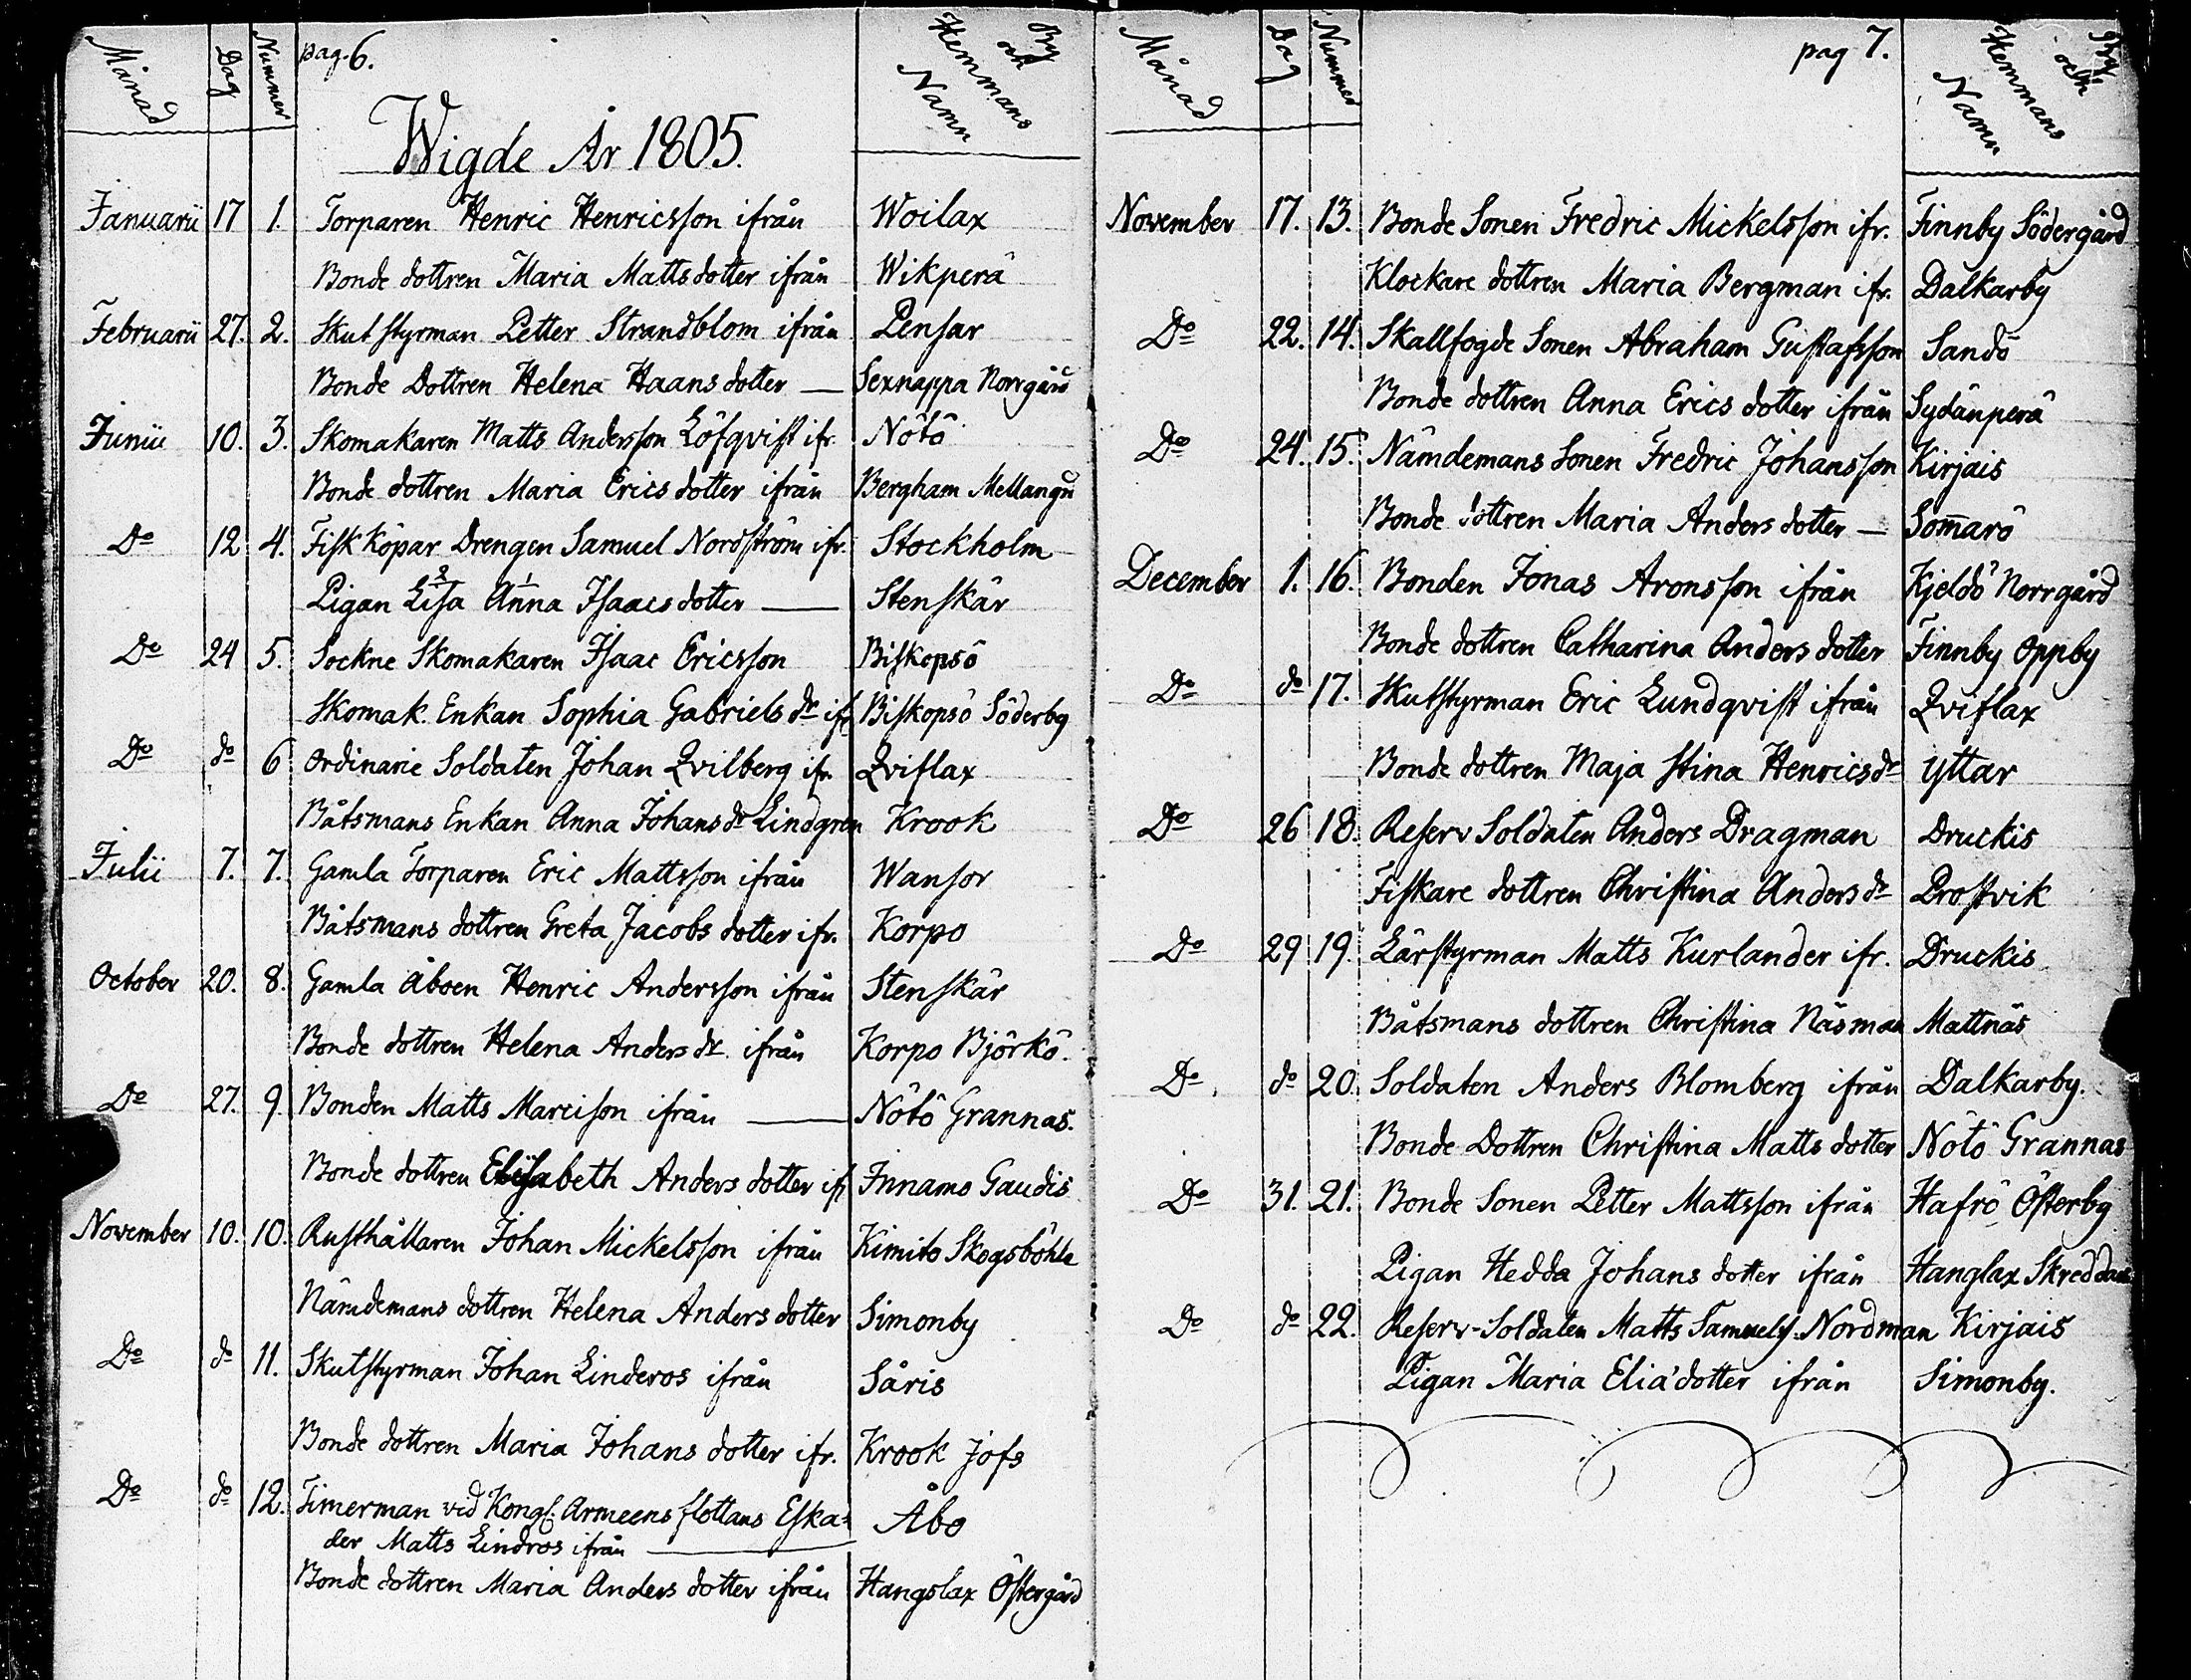 Månad Dag Nummer pag. 6. By och Hemmans Namn
Wigde År 1805.
Januarii 17 1. Torparen Henric Henricsson ifrån Woilax
Bonde dottren Maria Matts dotter ifrån Wikperä
Februarii 27. 2. Skutstyrman Petter Strandblom ifrån Pensar
Bonde Dottren Helena Haans dotter — Sexnappa Norrgård
Junii 10. 3. Skomakaren Matts Andersson Löfqvist ifr. Nötö
Bonde dottren Maria Erics dotter ifrån Bergham Mellangd
Do 12 4. Fisk Köpar Drengen Samuel Nordström ifr. Stockholm
Pigan Lisa Anna Isaacs dotter — Stenskär
Do 24 5. Sockne Skomakaren Isaac Ericsson Biskopsö
Skomak. Enkan Sophia Gabriels dr ifr Biskopsö Söderby
Do do 6 Ordinarie Soldaten Johan Qvilberg ifr. Qviflax
Båtsmans Enkan Anna Johans dr Lindgren Krook
Julii 7. 7. Gamla Torparen Eric Mattsson ifrån Wansor
Båtsmans dottren Greta Jacobs dotter ifr. Korpo
October 20. 8. Gamla Åboen Henric Andersson ifrån Stenskär
Bonde dottren Helena Anders dr. ifrån Korpo Björkö.
Do 27. 9. Bonden Matts Marcison ifrån — Nötö Grannas.
Bonde dottren Elisabeth Anders dotter ifr Innamo Gaudis
November 10. 10. Rusthållaren Johan Mickelsson ifrån Kimito Skogsböhle
Nämdemans dottren Helena Anders dotter Simonby
Do do 11. Skutstyrman Johan Linderos ifrån Såris
Bonde dottren Maria Johans dotter ifr. Krook Jofs
Do do 12. Timerman vid Kongl. Armeens flottans Eska= Åbo
der Matts Lindros ifrån —
Bonde dottren Maria Anders dotter ifrån Hangslax Östergård
Månad Dag Nummer pag 7. By och Hemmans Namn
November 17. 13. Bonde Sonen Fredric Mickelsson ifr. Finnby Södergård
Klockare dottren Maria Bergman ifr. Dalkarby
Do 22. 14. Skallfogde Sonen Abraham Gustafsson Sandö
Bonde dottren Anna Erics dotter ifrån Sydänperä
Do 24. 15. Nämdemans Sonen Fredric Johansson Kirjais
Bonde dottren Maria Anders dotter — Som̅arö
December 1. 16. Bonden Jonas Aronsson ifrån Kjeldö Norrgård
Bonde dottren Catharina Anders dotter Finnby Oppby
Do do 17. Skutstyrman Eric Lundqvist ifrån Qviflax
Bonde dottren Maja Stina Henrics dr yttar
Do 26 18. Reserv Soldaten Anders Dragman Druckis
Fiskare dottren Christina Anders dr Prostvik
Do 29 19. Lärstyrman Matts Kurlander ifr. Druckis
Båtsmans dottren Christina Näsman Mattnäs
Do do 20. Soldaten Anders Blomberg ifrån Dalkarby.
Bonde Dottren Christina Matts dotter Nötö Grannas
Do 31. 21. Bonde Sonen Petter Mattsson ifrån Hafrö Österby
Pigan Hedda Johans dotter ifrån Hanglax
Do do 22. Reserv-Soldaten Matts Samuels. Nordman Kirjais
Pigan Maria Elia'dotter ifrån Simonby.